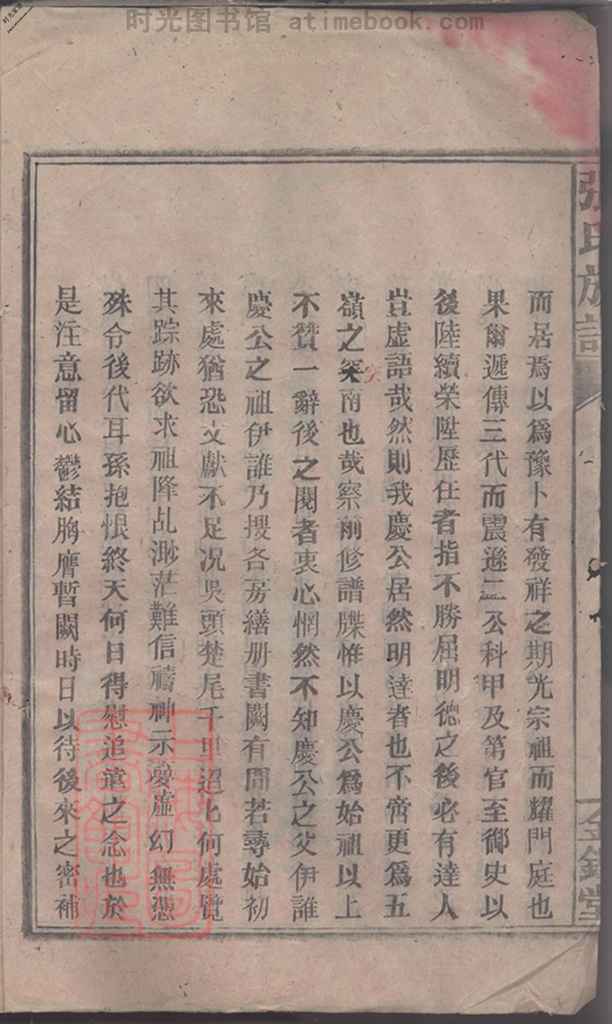 时光图书馆 atimebook.com
張氏族譜
金鑑堂
而居焉以爲豫卜有發祥之期光宗祖而耀門庭也
果爾遞傳三代而震遜二公科甲及第官至御史以
後陸續榮陞歷任者指不勝屈明德之後必有達人
豈虛語哉然則我慶公居然明達者也不啻更爲五
嶺之突南也哉察前修譜牒惟以慶公爲始祖以上
不贊一辭後之閱者衷心惘然不知慶公之父伊誰
慶公之祖伊誰乃搜各房繕册書闕有間若尋始初
來處猶恐文獻不足况吳頭楚尾千里迢迢何處覽
其踪跡欲求祖降乩渺茫難信禱神示夢虛幻無憑
殊令後代耳孫抱恨終天何日得慰追遠之念也於
是注意留心鬱結胸膺暫闕時日以待後來之密補